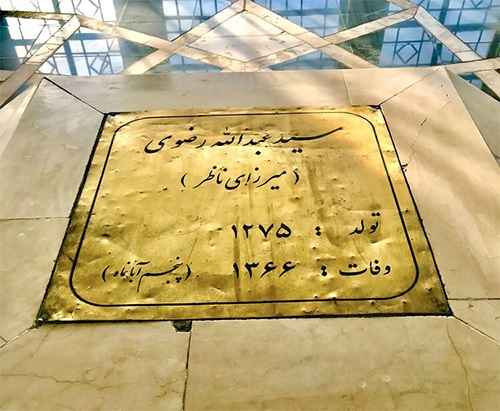 سید عبدالله رضوی
(میرزای ناظر)
تولد : ۱۲۷۵
وفات : ۱۳۶۶ (پنجم آبانماه)